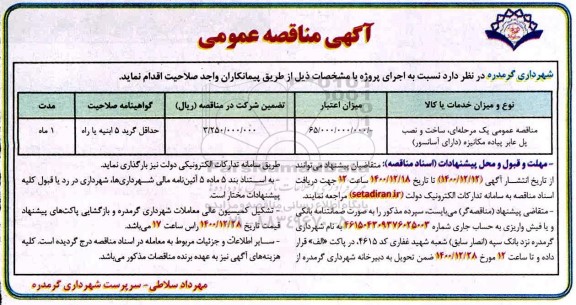 آگهی مناقصه عمومی
شهرداری گرمدره در نظر دارد نسبت به اجرای پروژه با مشخصات ذیل از طریق پیمانکاران واجد صلاحیت اقدام نماید.
نوع و میزان خدمات یا کالا
میزان اعتبار
تضمین شرکت در مناقصه (ریال)
گواهینامه صلاحیت
مدت
مناقصه عمومی یک مرحله‌ای، ساخت و نصب
پل عابر پیاده مکانیزه (دارای آسانسور)
۶۵/۰۰۰/۰۰۰/۰۰۰
۳/۲۵۰/۰۰۰/۰۰۰
حداقل گرید ۵ ابنیه یا راه
۱ ماه
- مهلت و قبول و محل پیشنهادات (اسناد مناقصه): متقاضیان پیشنهاد می‌توانند
از تاریخ انتشار آگهی (۱۴۰۰/۱۲/۱۲) تا تاریخ ۱۴۰۰/۱۲/۱۸ ساعت ۱۲ جهت دریافت
اسناد مناقصه به سامانه تدارکات الکترونیک دولت (setadiran.ir) مراجعه نمایند.
- متقاضی پیشنهاد (مناقصه‌گر) می‌بایست، سپرده مذکور را به صورت ضمانتنامه بانکی
و یا فیش واریزی به حساب جاری شماره ۴۶۱۵۰۴۳۰۹۳۷۶۰۲۵۰۰۳ به نام شهرداری
گرمدره نزد بانک سپه (انصار سابق) شعبه شهید غفاری کد ۴۶۱۵، در پاکت «الف» قرار
داده و تا ساعت ۱۲ مورخ ۱۴۰۰/۱۲/۲۸ ضمن تحویل به دبیرخانه شهرداری گرمدره از
طریق سامانه تدارکات الکترونیکی دولت نیز بارگذاری نماید.
- به استناد بند ۵ ماده ۵ آئین‌نامه مالی شهرداری‌ها، شهرداری در رد یا قبول کلیه
پیشنهادات مختار است.
- تشکیل کمیسیون عالی معاملات شهرداری گرمدره و بازگشایی پاکت‌های پیشنهاد
قیمت تاریخ ۱۴۰۰/۱۲/۲۸ راس ساعت ۱۷ می‌باشد.
- سایر اطلاعات و جزئیات مربوط به معامله در اسناد مناقصه درج گردیده است. کلیه
هزینه‌های آگهی نیز به عهده برنده مناقصات مذکور می‌باشد.
مهرداد سلاطی - سرپرست شهرداری گرمدره